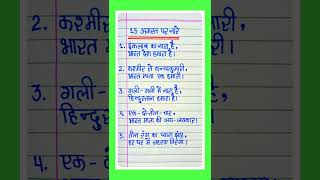 15 अगस्त पर नारे
1. इंकलाब का नारा है,
भारत देश हमारा है।
2. कश्मीर से कन्याकुमारी,
भारत माता एक हमारी।
3. गली-गली में नारा है,
हिन्दुस्तान हमारा है।
4. एक-दो-तीन-चार,
भारत माता की जय-जयकार।
5. तीन रंग का प्यारा झंडा,
हर घर में लहराए तिरंगा।